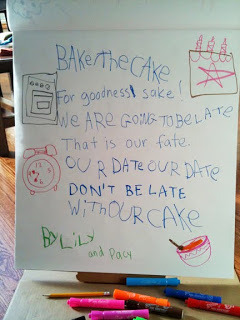 BAKE THE CAKE
For goodness sake!
WE ARE GOING TO BE LATE
That is our fate.
OUR DATE OUR DATE
DON'T BE LATE
WiTH OUR CAKE
BY LiLY
and Pacy